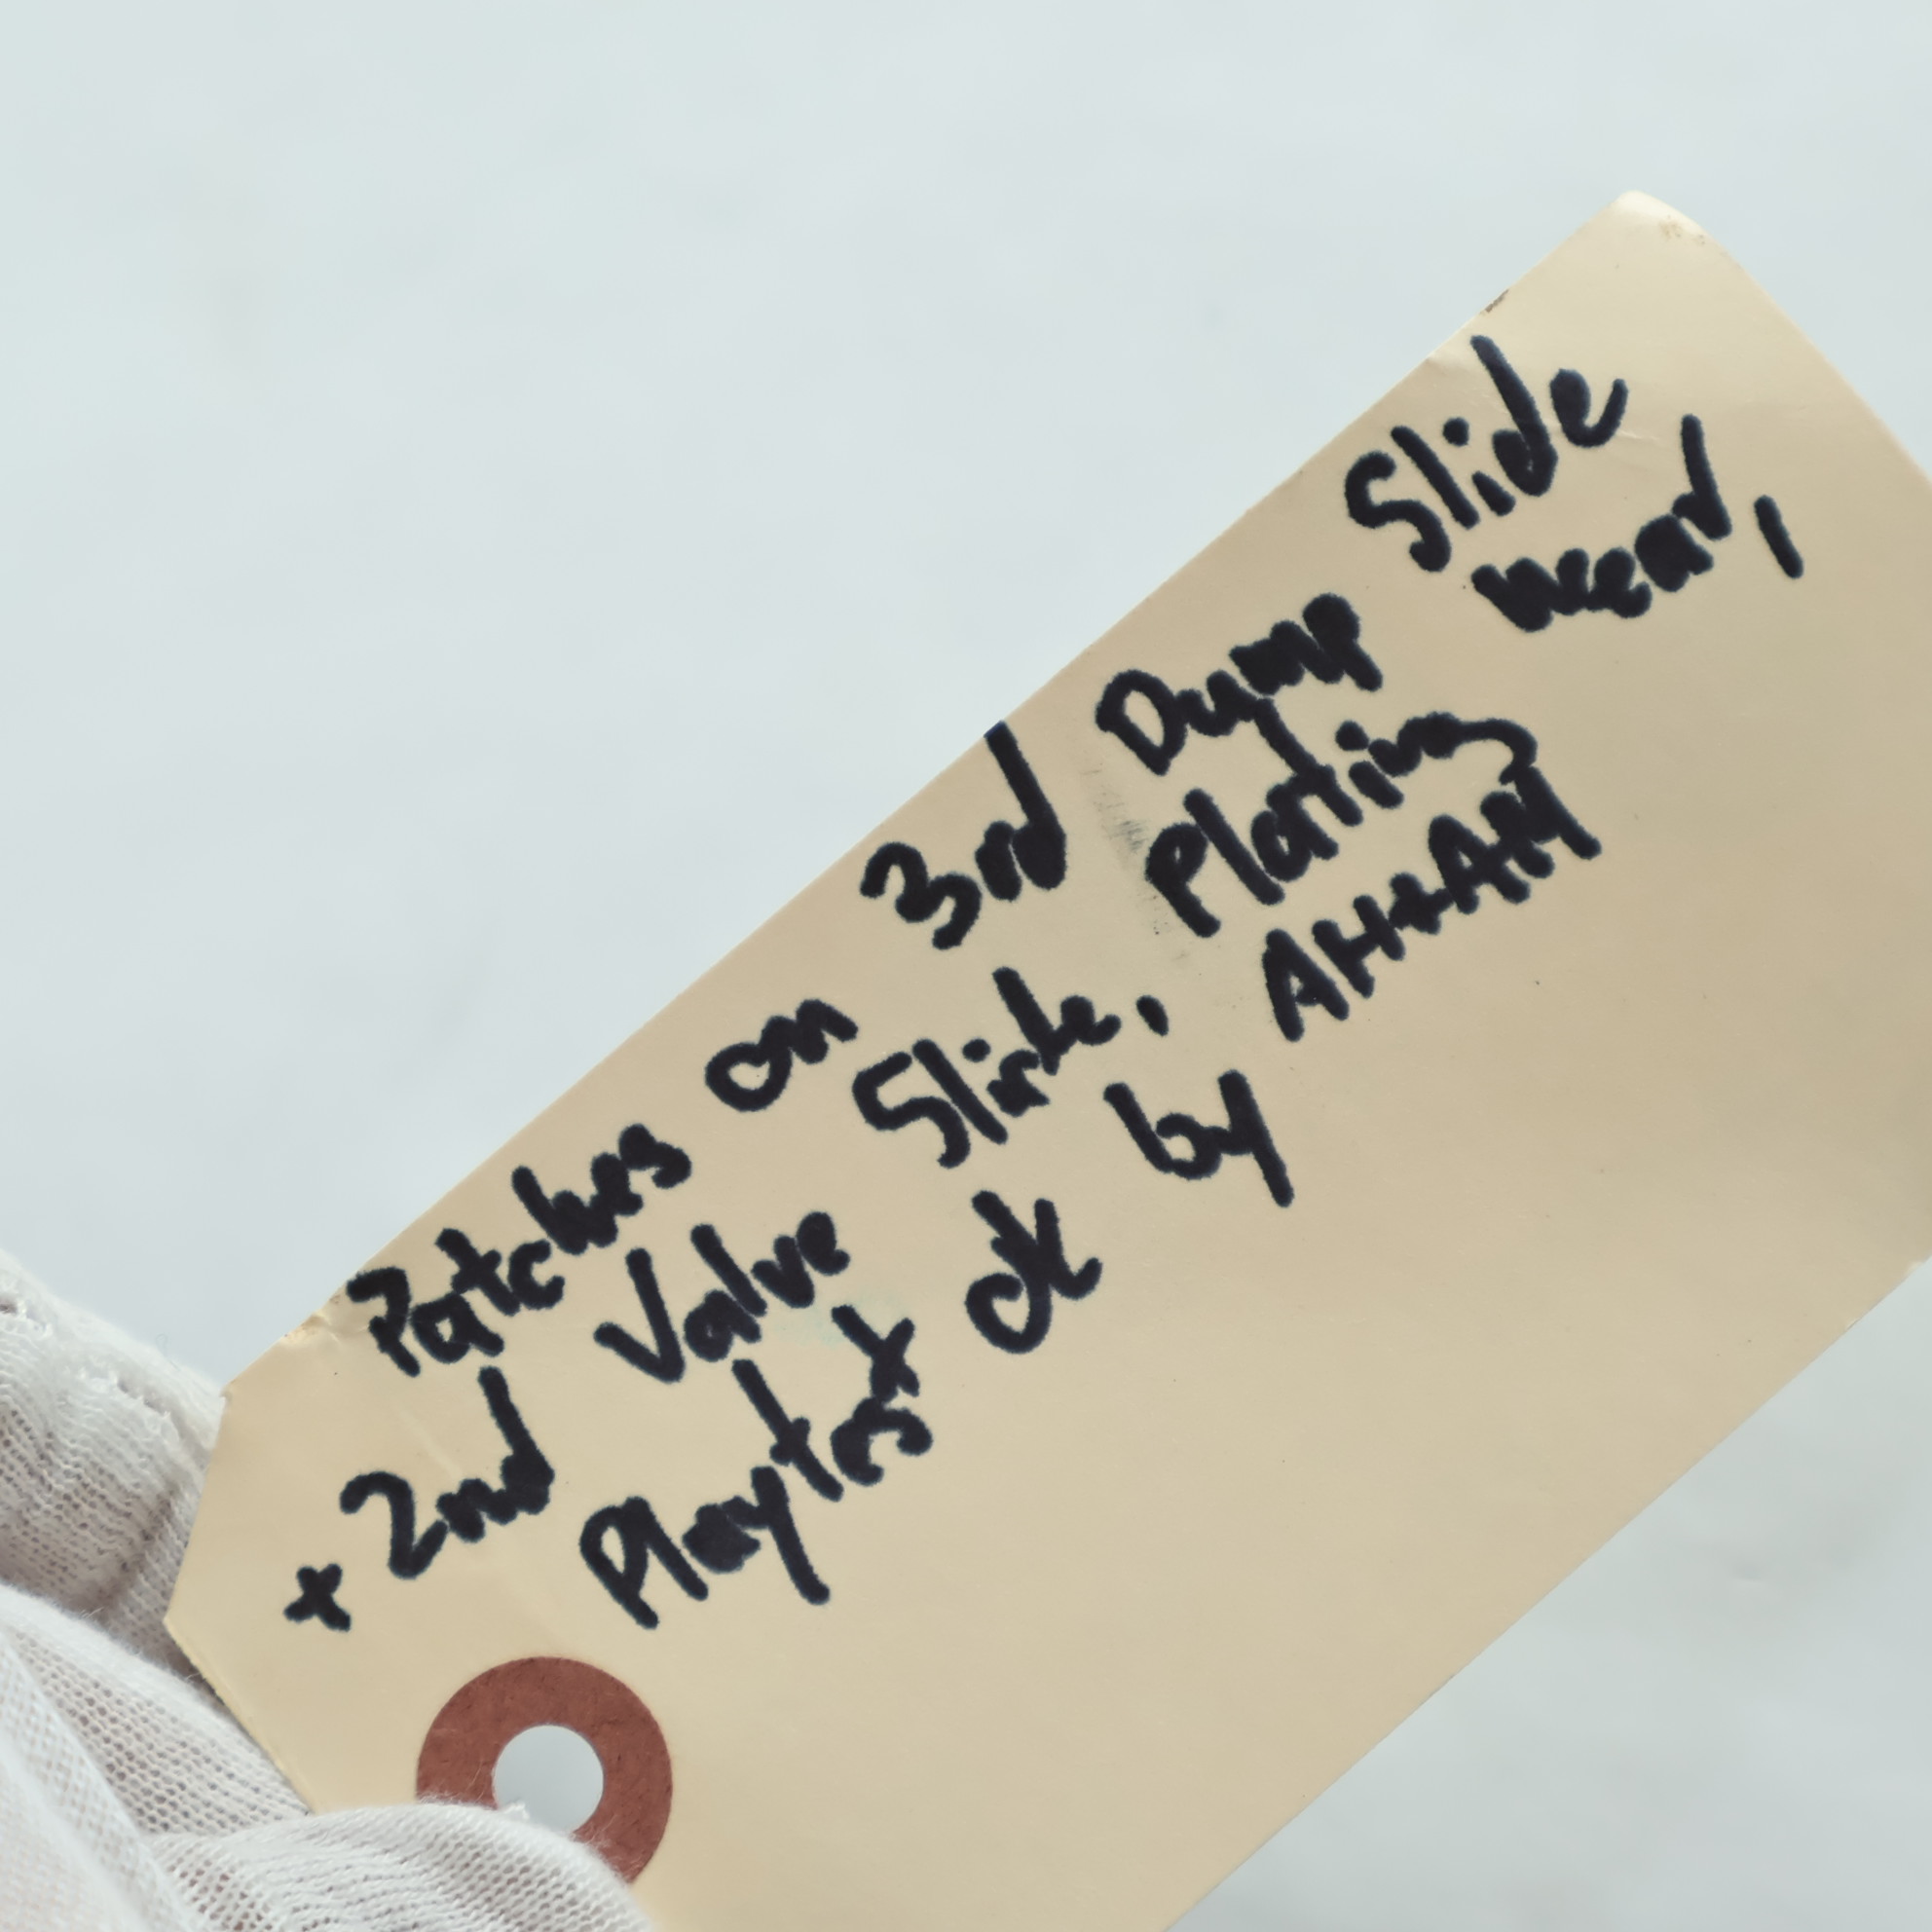 Patches on 3rd Dump Slide
+ 2nd Valve Slide, Plating Wear,
Playtest ok by AH+AM